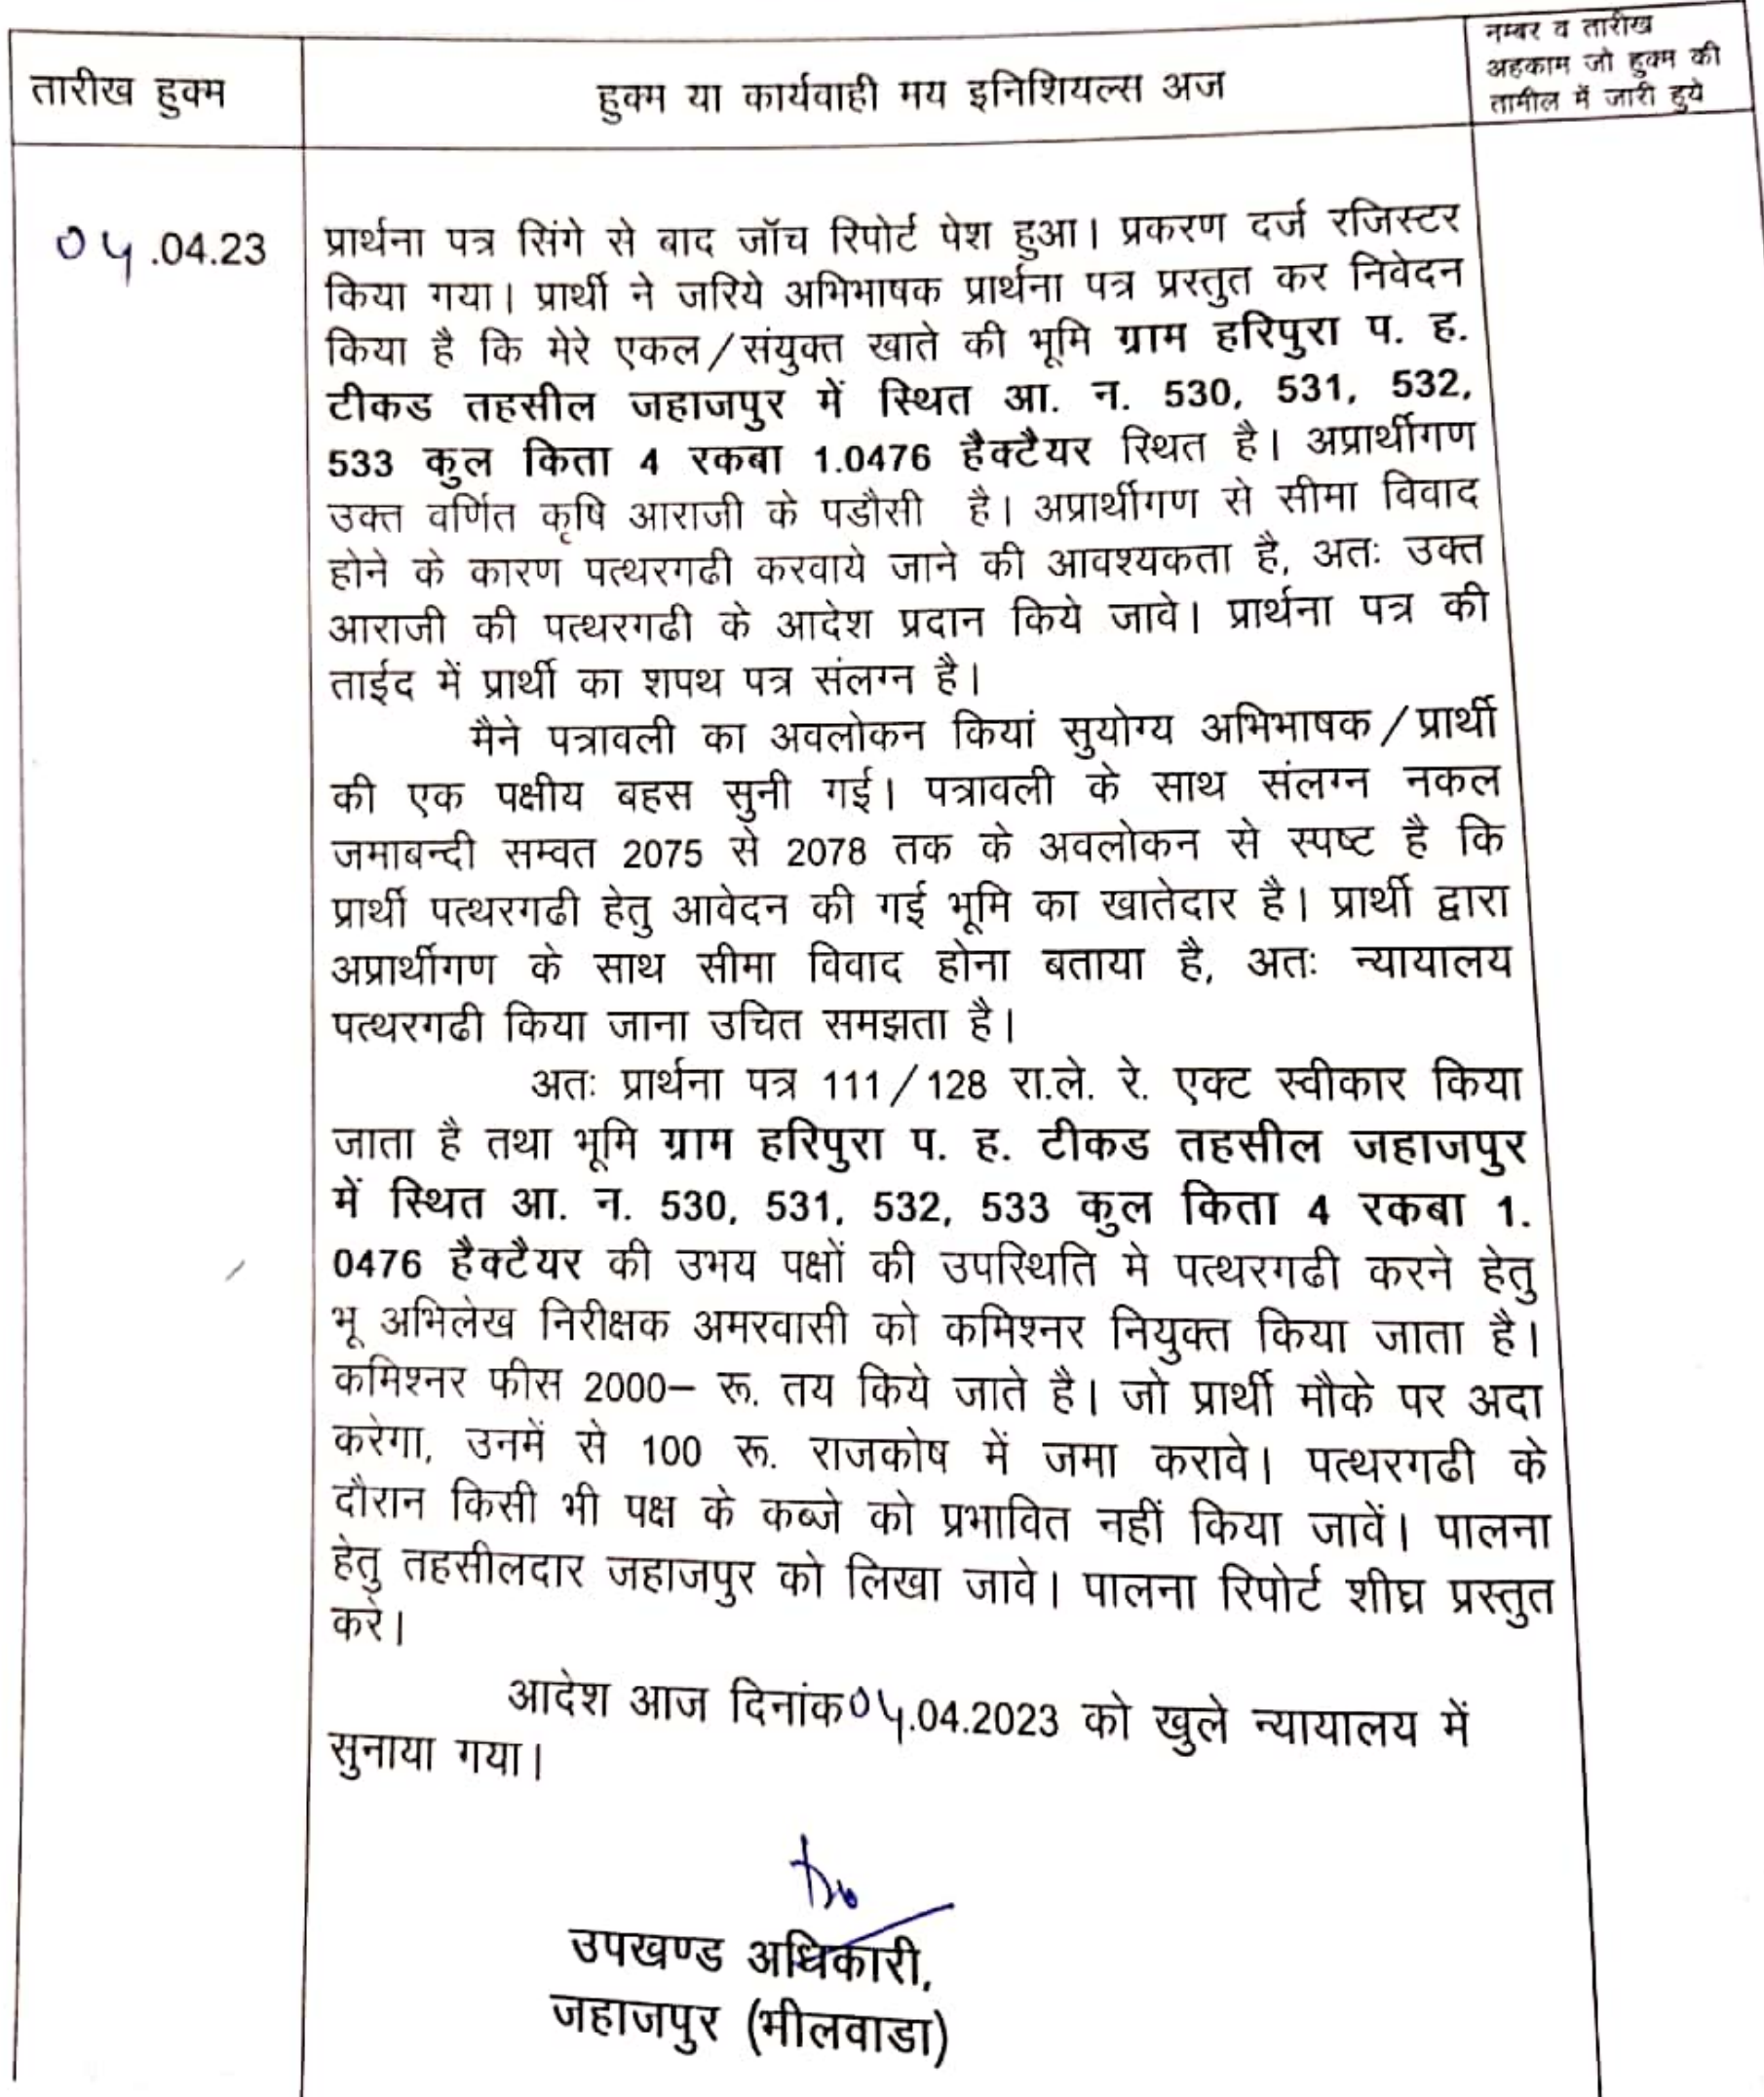 तारीख हुक्म
हुक्म या कार्यवाही मय इनिशियल्स अज
नम्बर व तारीख
अहकाम जो हुक्म की
तामील में जारी हुये
04.04.23
प्रार्थना पत्र सिंगे से बाद जॉच रिपोर्ट पेश हुआ। प्रकरण दर्ज रजिस्टर
किया गया। प्रार्थी ने जरिये अभिभाषक प्रार्थना पत्र प्रस्तुत कर निवेदन
किया है कि मेरे एकल/संयुक्त खाते की भूमि ग्राम हरिपुरा प. ह.
टीकड तहसील जहाजपुर में स्थित आ. न. 530, 531, 532,
533 कुल किता 4 रकबा 1.0476 हैक्टैयर स्थित है। अप्रार्थीगण
उक्त वर्णित कृषि आराजी के पडौसी है। अप्रार्थीगण से सीमा विवाद
होने के कारण पत्थरगढी करवाये जाने की आवश्यकता है, अतः उक्त
आराजी की पत्थरगढी के आदेश प्रदान किये जावे। प्रार्थना पत्र की
ताईद में प्रार्थी का शपथ पत्र संलग्न है।
मैने पत्रावली का अवलोकन कियां सुयोग्य अभिभाषक/प्रार्थी
की एक पक्षीय बहस सुनी गई। पत्रावली के साथ संलग्न नकल
जमाबन्दी सम्वत 2075 से 2078 तक के अवलोकन से स्पष्ट है कि
प्रार्थी पत्थरगढी हेतु आवेदन की गई भूमि का खातेदार है। प्रार्थी द्वारा
अप्रार्थीगण के साथ सीमा विवाद होना बताया है, अतः न्यायालय
पत्थरगढी किया जाना उचित समझता है।
अतः प्रार्थना पत्र 111/128 रा.ले. रे. एक्ट स्वीकार किया
जाता है तथा भूमि ग्राम हरिपुरा प. ह. टीकड तहसील जहाजपुर
में स्थित आ. न. 530, 531, 532, 533 कुल किता 4 रकबा 1.
0476 हैक्टैयर की उभय पक्षों की उपस्थिति मे पत्थरगढी करने हेतु
भू अभिलेख निरीक्षक अमरवासी को कमिश्नर नियुक्त किया जाता है।
कमिश्नर फीस 2000– रू. तय किये जाते है। जो प्रार्थी मौके पर अदा
करेगा, उनमें से 100 रू. राजकोष में जमा करावे। पत्थरगढी के
दौरान किसी भी पक्ष के कब्जे को प्रभावित नहीं किया जावें। पालना
हेतु तहसीलदार जहाजपुर को लिखा जावे। पालना रिपोर्ट शीघ्र प्रस्तुत
करे।
आदेश आज दिनांक04.04.2023 को खुले न्यायालय में
सुनाया गया।
उपखण्ड अधिकारी,
जहाजपुर (भीलवाडा)